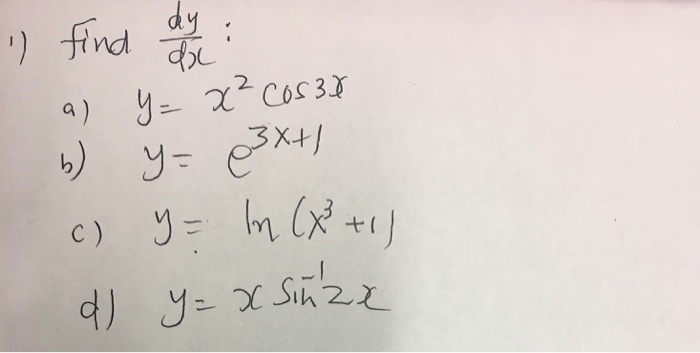 1) find dy/dx :
a) y= x² cos3x
b) y= e^3x+1
c) y= ln (x³ +1)
d) y= x sin⁻¹2x